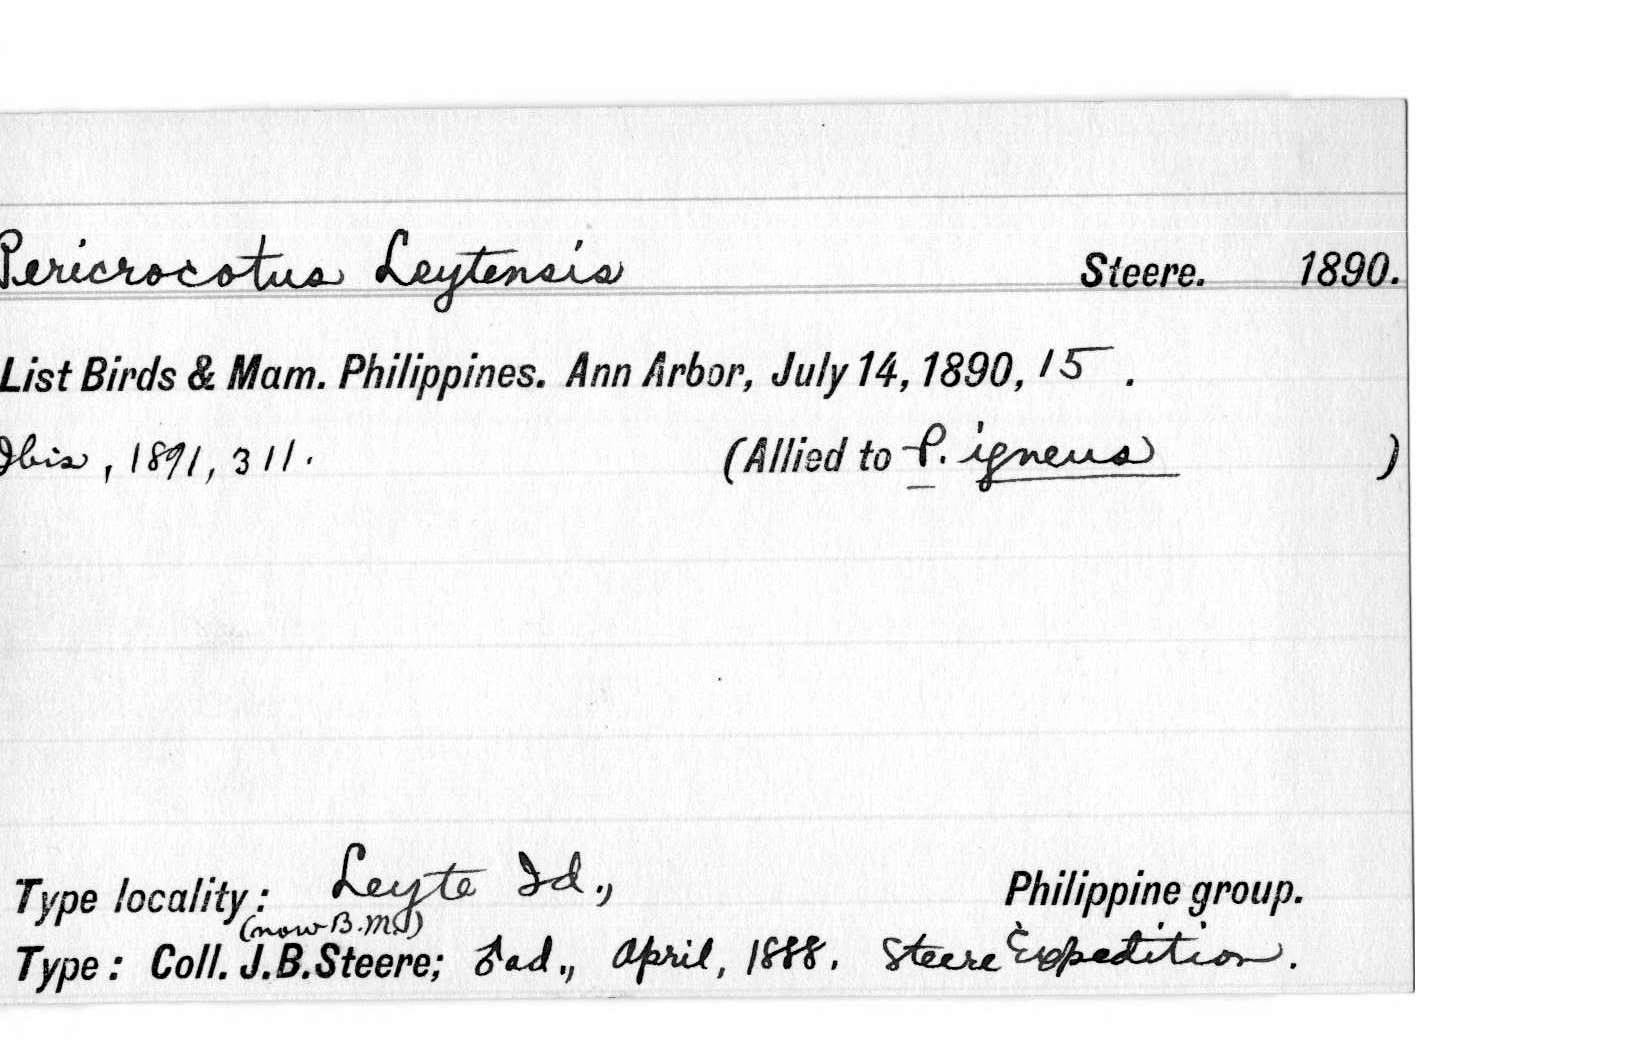 Pericrocotus Leytensis Steere. 1890.
List Birds & Mam. Philippines. Ann Arbor, July 14, 1890, 15.
Ibis, 1891, 311. (Allied to P. igneus )
Type locality: Leyte Id., Philippine group.
(now B.M.)
Type: Coll. J.B.Steere; ♂ ad., April, 1888. Steere Expedition.